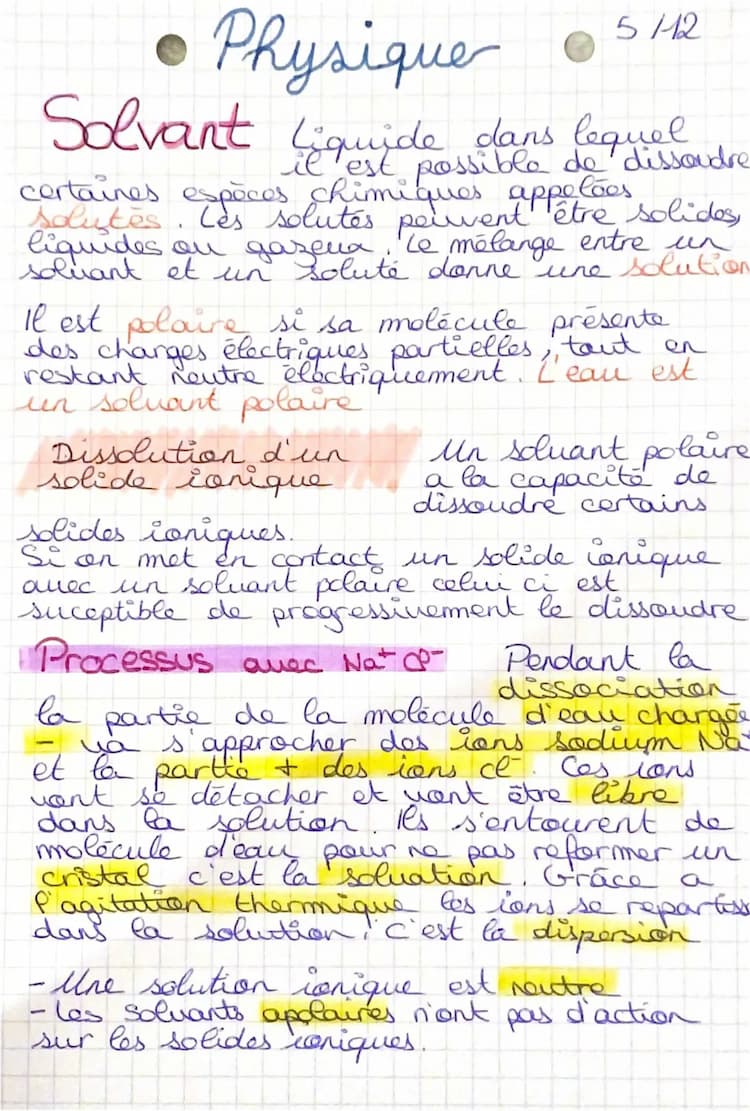 Physique
5/12
Solvant Liquide dans lequel
il est possible de dissoudre
certaines espèces chimiques appelées
solutés. Les solutés peuvent être solides,
liquides ou gazeux. Le mélange entre un
solvant et un soluté donne une solution
Il est polaire si sa molécule présente
des charges électriques partielles, tout en
restant neutre électriquement. L'eau est
un solvant polaire
Dissolution d'un
solide ionique
Un solvant polaire
a la capacité de
dissoudre certains
solides ioniques.
Si on met en contact un solide ionique
avec un solvant polaire celui ci est
suceptible de progressivement le dissoudre
Processus avec Na+ Cl- Pendant la
dissociation
la partie de la molécule d'eau chargée
- va s'approcher des ions sodium Na+
et la partie + des ions cl-. Ces ions
vont se détacher et vont être libre
dans la solution. Ils s'entourent de
molécule d'eau pour ne pas reformer un
cristal c'est la solvation. Grâce a
l'agitation thermique les ions se repartiss
dans la solution, c'est la dispersion
- Une solution ionique est neutre
- Les solvants apolaires n'ont pas d'action
sur les solides ioniques.